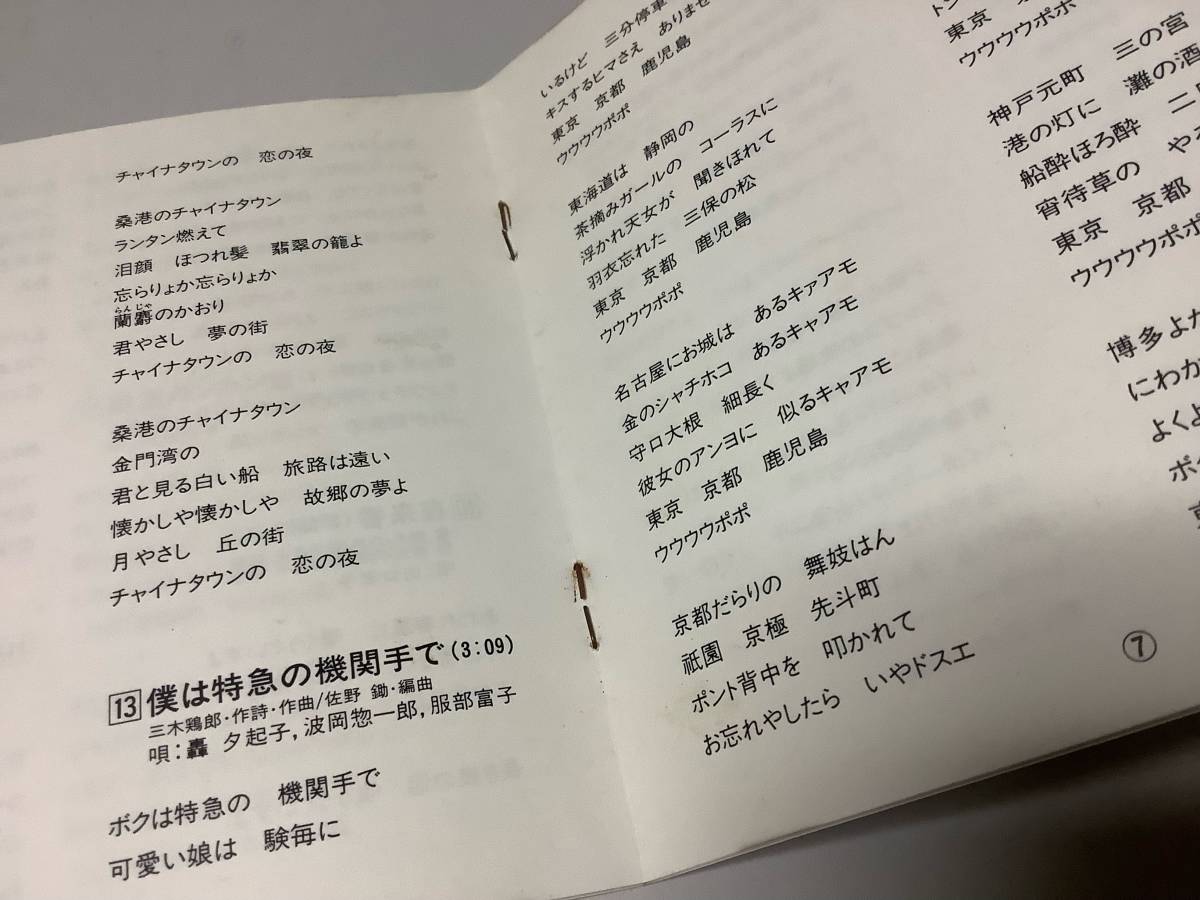 チャイナタウンの　恋の夜
桑港のチャイナタウン
ランタン燃えて
泪顔　ほつれ髪　翡翠の籠よ
忘らりょか忘らりょか
蘭麝のかおり
らんじゃ
君やさし　夢の街
チャイナタウンの　恋の夜
桑港のチャイナタウン
金門湾の
君と見る白い船　旅路は遠い
懐かしや懐かしや　故郷の夢よ
月やさし　丘の街
チャイナタウンの　恋の夜
13 僕は特急の機関手で(3:09)
三木鶏郎・作詩・作曲/佐野　鋤・編曲
唄：轟　夕起子, 波岡惣一郎, 服部富子
ボクは特急の　機関手で
可愛い娘は　験毎に
いるけど　三分停車
キスするヒマさえ　ありませ
東京　京都　鹿児島
ウウウウポポ
東海道は　静岡の
茶摘みガールの　コーラスに
浮かれ天女が　聞きほれて
羽衣忘れた　三保の松
東京　京都　鹿児島
ウウウウポポ
名古屋にお城は　あるキァアモ
金のシャチホコ　あるキャアモ
守口大根　細長く
彼女のアンヨに　似るキャアモ
東京　京都　鹿児島
ウウウウポポ
京都だらりの　舞妓はん
祇園　京極　先斗町
ポント背中を　叩かれて
お忘れやしたら　いやドスエ
東京
ウウウウポポ
神戸元町　三の宮
港の灯に　灘の酒
船酔ほろ酔
宵待草の　や
東京　京都
ウウウウポポ
博多よか
にわか
よくよ
ボ
⑦